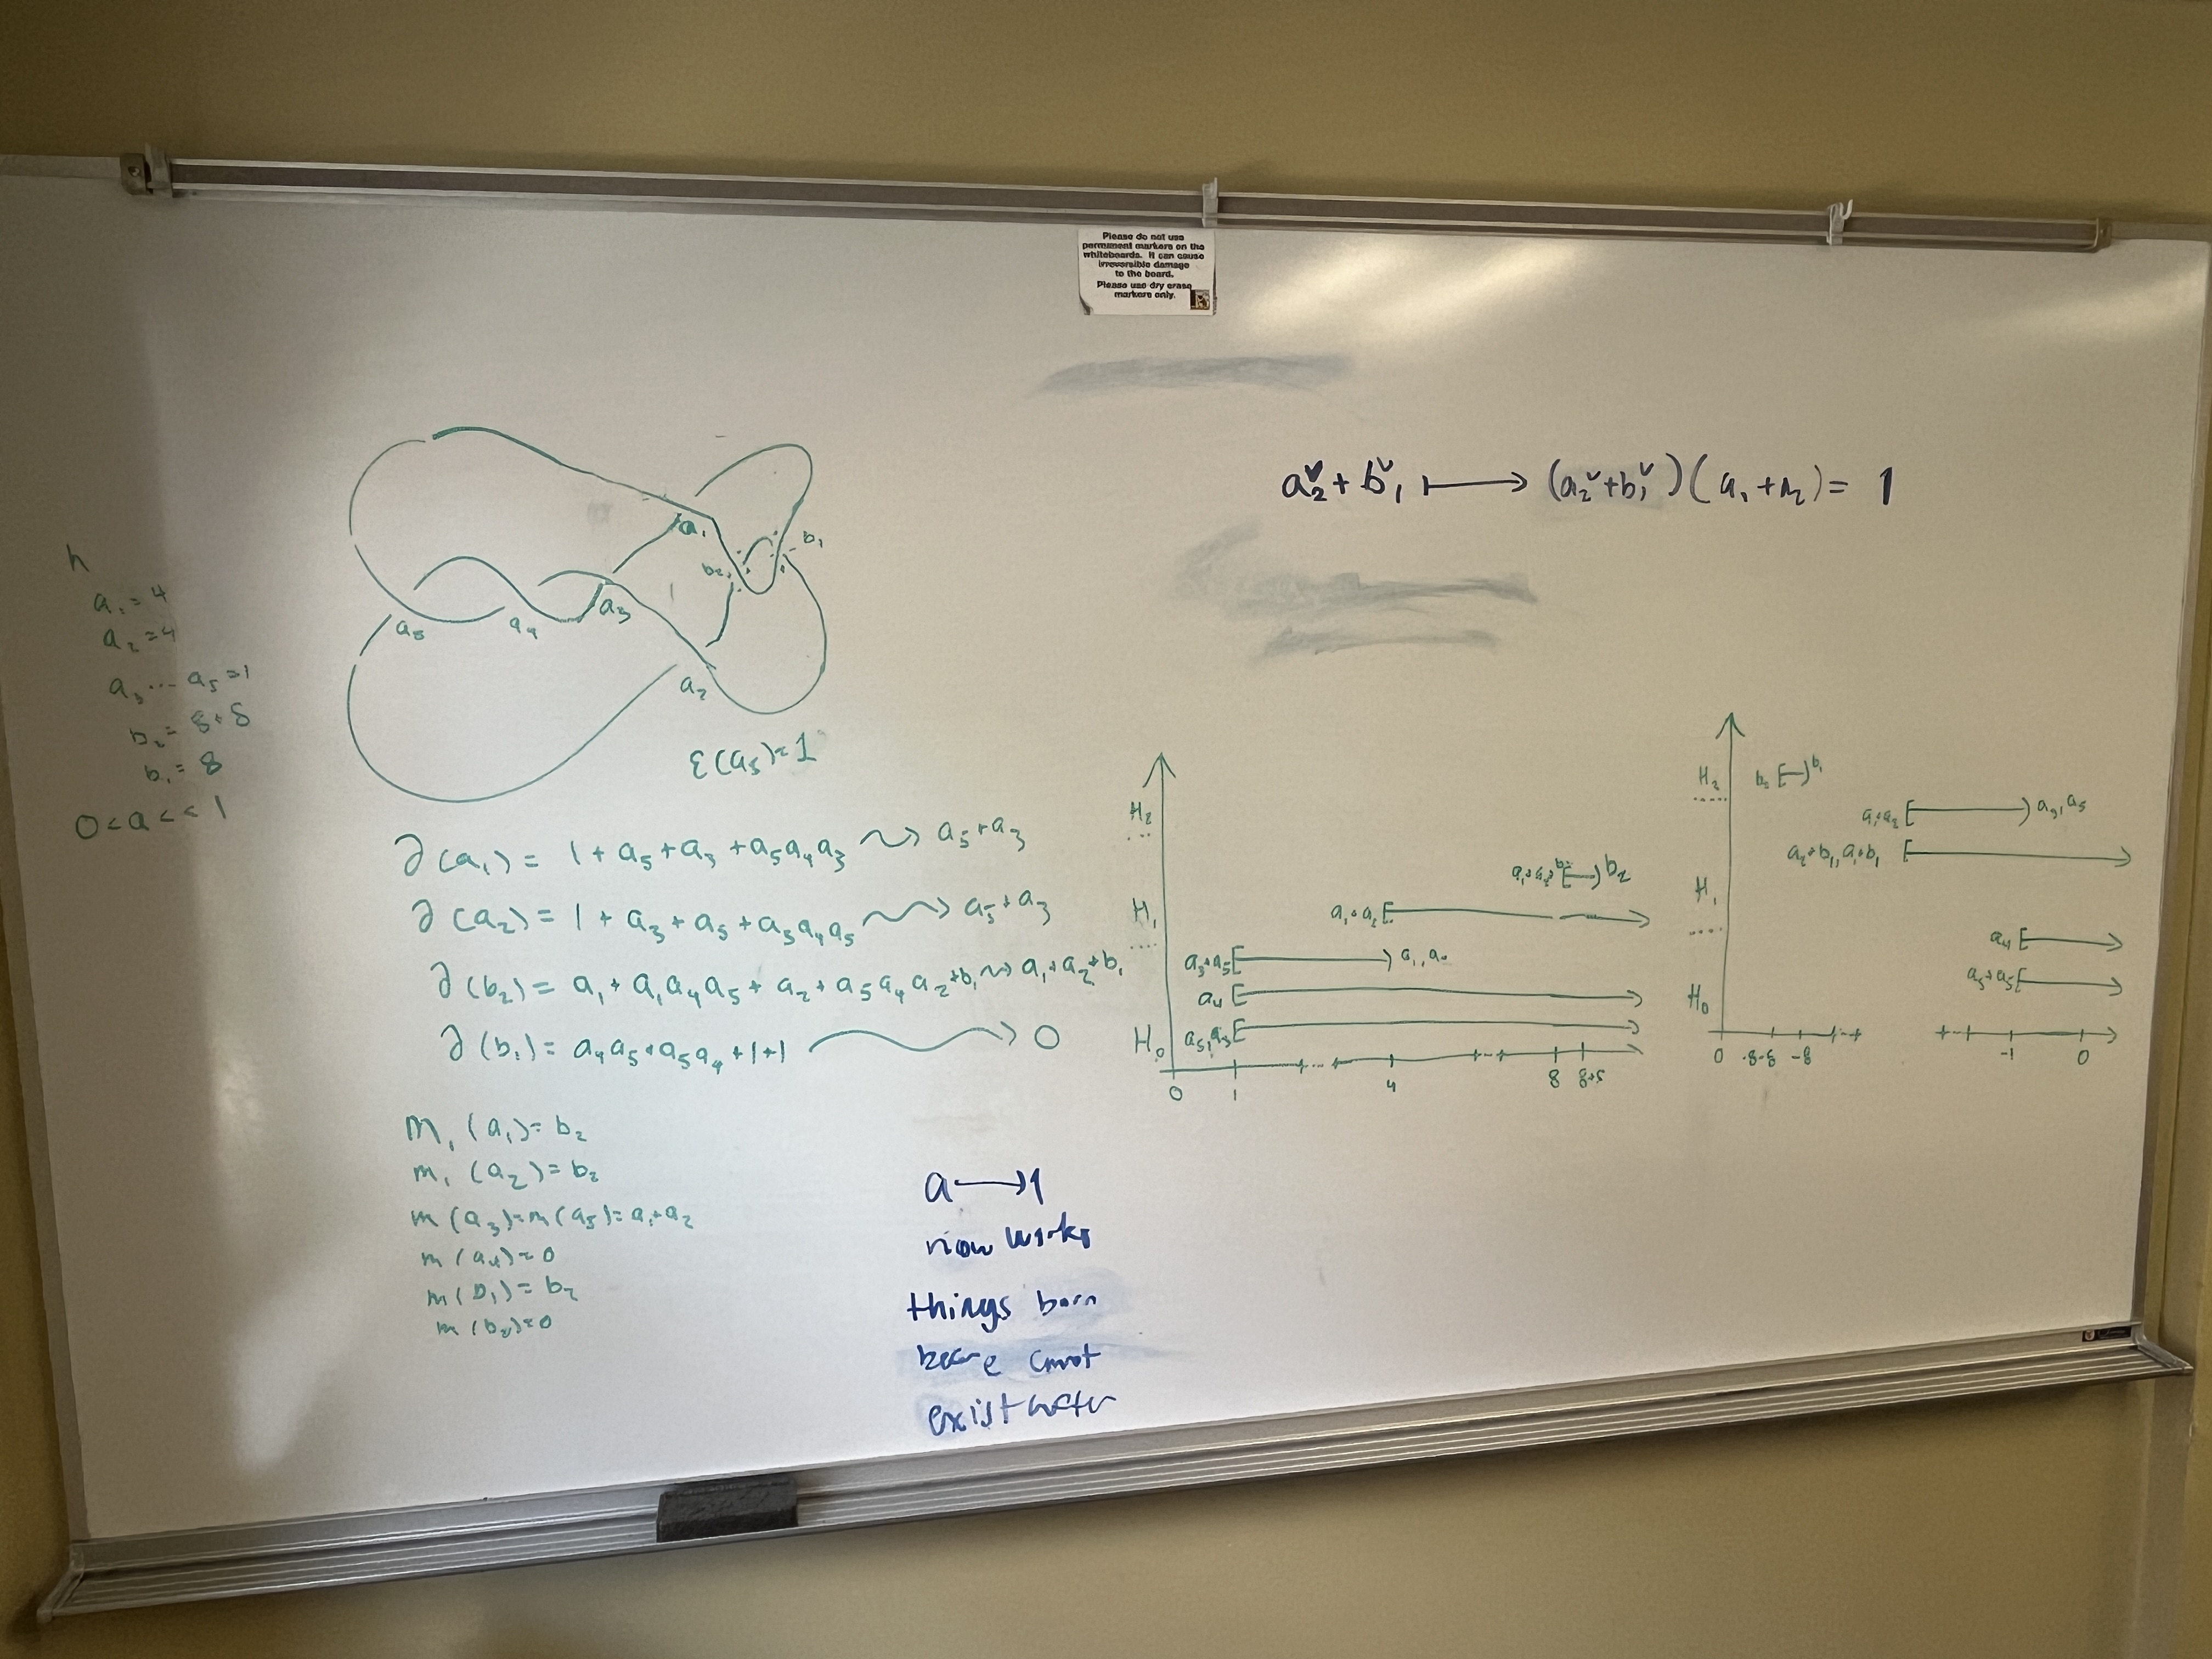 Please do not use
permanent markers on the
whiteboards. It can cause
irreversible damage
to the board.
Please use dry erase
markers only.
a₂ˇ + b₁ˇ ⟼ (a₂ˇ + b₁ˇ)(a₁ + a₂) = 1
h
a₁ = 4
a₂ = 4
a₃ ... a₅ = 1
b₂ = 8 + δ
b₁ = 8
0 < a << 1
a₁
b₁
b₂
a₃
a₅
a₄
a₂
ε(a₅) = 1
∂(a₁) = 1 + a₅ + a₃ + a₅a₄a₃ ⇝ a₅ + a₃
∂(a₂) = 1 + a₃ + a₅ + a₃a₄a₅ ⇝ a₅ + a₃
∂(b₂) = a₁ + a₁a₄a₅ + a₂ + a₅a₄a₂ + b₁ ⇝ a₁ + a₂ + b₁
∂(b₁) = a₄a₅ + a₅a₄ + 1 + 1 ⟶ 0
m₁(a₁) = b₂
m₁(a₂) = b₂
m(a₃) = m(a₅) = a₁ + a₂
m(a₄) = 0
m(b₁) = b₂
m(b₂) = 0
a ⟶ 1
now works
things born
exist
H₂
a₁ + a₂ + b₁ [—) b₂
H₁
a₁ + a₂ [⟶
a₃ + a₅ [⟶) a₁,
a₄ [⟶
H₀
a₅, a₃ [⟶
0 1 ... 4 ... 8 8+δ
H₂
b₂ [—) b₁
a₁ + a₂ [—) a₃, a₅
a₂ + b₁, a₁ + b₁ [⟶
H₁
a₄ [⟶
a₃ + a₅ [⟶
H₀
0 -8-δ -8 -1 0